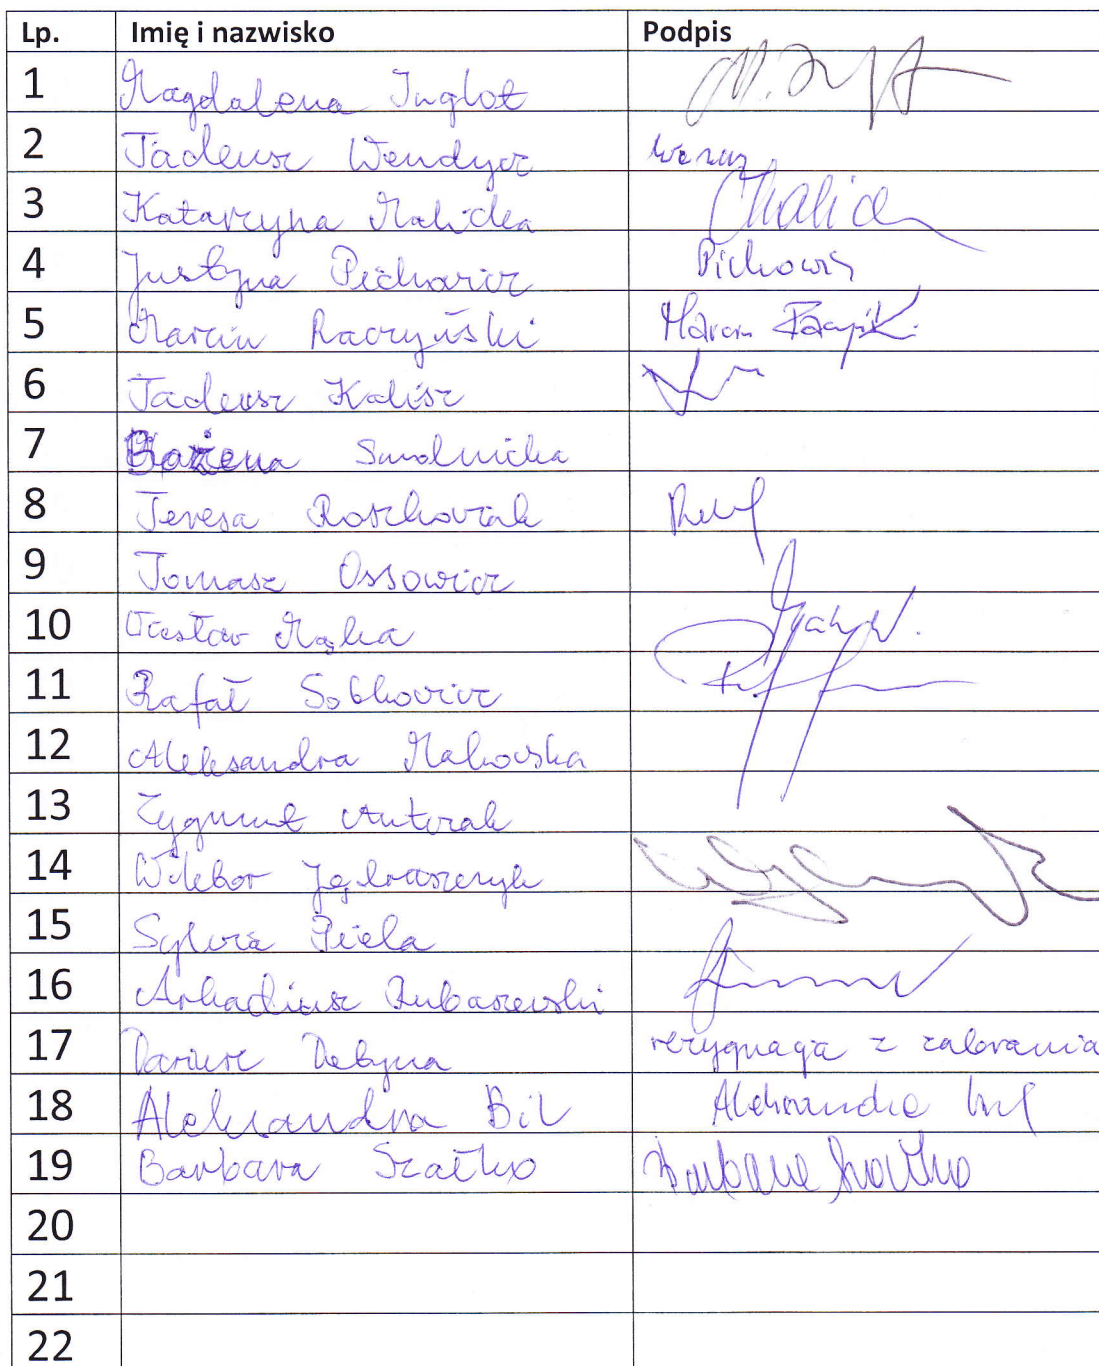 Lp. Imię i nazwisko Podpis
1 Magdalena Inglot
2 Tadeusz Wendycz
3 Katarzyna Malicka
4 Justyna Piechowicz
5 Marcin Raczyński Marcin
6 Tadeusz Kalisz
7 Bożena Smolnicka
8 Teresa Roszkowiak
9 Tomasz Ossowicz
10 Wiesław Mąka
11 Rafał Sobkowicz
12 Aleksandra Makowska
13 Zygmunt Antczak
14 Wilebor Jędraszczyk
15 Sylwia Piela
16 Arkadiusz Rubaszewski
17 Dariusz Debyna rezygnacja z zabrania
18 Aleksandra Bil Aleksandra
19 Barbara Szałko Barbara Szałko
20
21
22